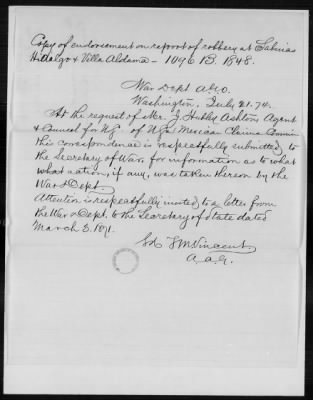 Copy of endorsement on report of robbery at Sabinas
Hidalgo & Villa Aldama - 1096 B. 1848.
War Dept A.G.O.
Washington, July 21. 74.
At the request of Mr. J. Hubley Ashton, Agent
& Counsel for U.S. of U.S. & Mexican Claims Comm
this correspondence is respectfully submitted to
the Secretary of War, for information as to what
what action, if any, was taken thereon by the
War Dept.
Attention is respectfully invited to a letter from
the War Dept. to the Secretary of State dated
March 3. 1871.
Sd Vincent
A.A.G.